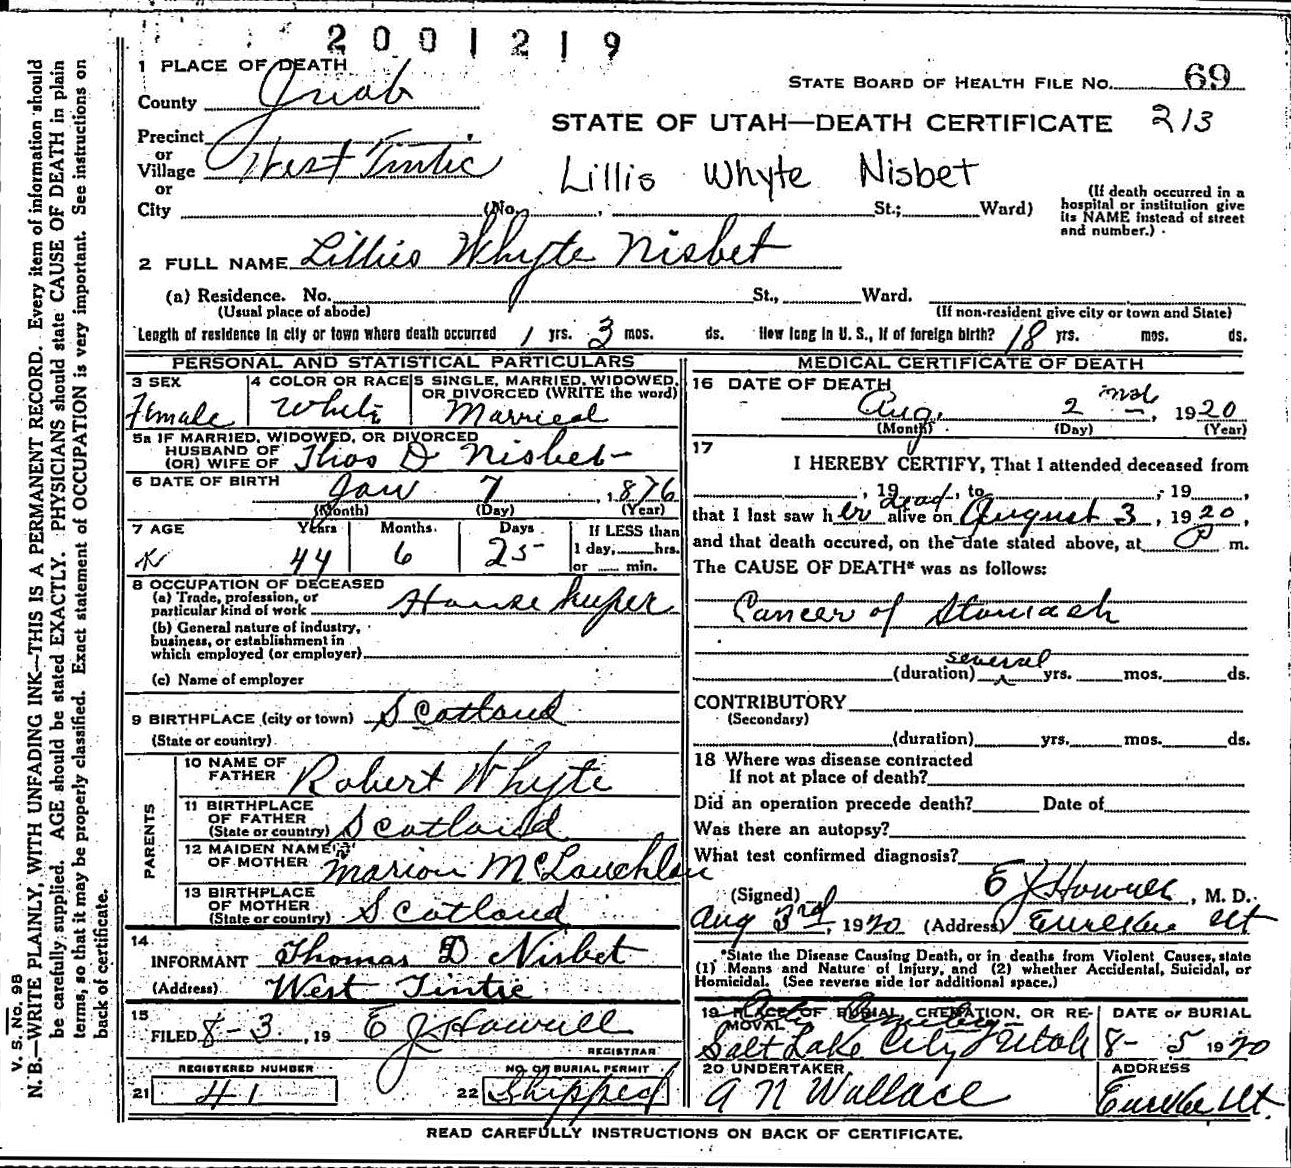 2001219
1 PLACE OF DEATH
STATE BOARD OF HEALTH FILE No. 69
County Juab
STATE OF UTAH—DEATH CERTIFICATE 213
Precinct
or
Village West Tintic
or
Lillis Whyte Nisbet
City (No. , St.; Ward)
(If death occurred in a hospital or institution give its NAME instead of street and number.)
2 FULL NAME Lillis Whyte Nisbet
(a) Residence. No. St., Ward.
(Usual place of abode) (If non-resident give city or town and State)
Length of residence in city or town where death occurred 1 yrs. 3 mos. ds. How long in U. S., if of foreign birth? 18 yrs. mos. ds.
PERSONAL AND STATISTICAL PARTICULARS
3 SEX Female
4 COLOR OR RACE White
5 SINGLE, MARRIED, WIDOWED, OR DIVORCED (WRITE the word) Married
5a IF MARRIED, WIDOWED, OR DIVORCED
HUSBAND OF
(OR) WIFE OF Thos D Nisbet
6 DATE OF BIRTH Jan 7, 1876
(Month) (Day) (Year)
7 AGE Years Months Days If LESS than
44 6 25 1 day, hrs.
or min.
8 OCCUPATION OF DECEASED
(a) Trade, profession, or
particular kind of work House keeper
(b) General nature of industry,
business, or establishment in
which employed (or employer)
(c) Name of employer
9 BIRTHPLACE (city or town) Scotland
(State or country)
PARENTS
10 NAME OF
FATHER Robert Whyte
11 BIRTHPLACE
OF FATHER
(State or country) Scotland
12 MAIDEN NAME
OF MOTHER Marion McLauchlan
13 BIRTHPLACE
OF MOTHER
(State or country) Scotland
14
INFORMANT Thomas D Nisbet
(Address) West Tintic
15
FILED 8-3, 19 E J Howell
REGISTRAR
REGISTERED NUMBER
21 41
NO. OF BURIAL PERMIT
22 Shipped
MEDICAL CERTIFICATE OF DEATH
16 DATE OF DEATH
Aug. 2, 1920
(Month) (Day) (Year)
17
I HEREBY CERTIFY, That I attended deceased from
, 19 , to , 19 ,
that I last saw her dead alive on August 3, 1920,
and that death occured, on the date stated above, at P m.
The CAUSE OF DEATH* was as follows:
Cancer of Stomach
(duration) several yrs. mos. ds.
CONTRIBUTORY
(Secondary)
(duration) yrs. mos. ds.
18 Where was disease contracted
If not at place of death?
Did an operation precede death? Date of
Was there an autopsy?
What test confirmed diagnosis?
(Signed) E J Howell, M. D.
Aug 3rd, 1920 (Address) Eureka Ut
*State the Disease Causing Death, or in deaths from Violent Causes, state
(1) Means and Nature of Injury, and (2) whether Accidental, Suicidal, or
Homicidal. (See reverse side for additional space.)
19 PLACE OF BURIAL, CREMATION, OR RE-
MOVAL
Salt Lake City Utah
DATE OF BURIAL
8- 5 1920
20 UNDERTAKER
A N Wallace
ADDRESS
Eureka Ut.
READ CAREFULLY INSTRUCTIONS ON BACK OF CERTIFICATE.
V. S. No. 98
N. B.—WRITE PLAINLY, WITH UNFADING INK—THIS IS A PERMANENT RECORD. Every item of information should
be carefully supplied. AGE should be stated EXACTLY. PHYSICIANS should state CAUSE OF DEATH in plain
terms, so that it may be properly classified. Exact statement of OCCUPATION is very important. See instructions on
back of certificate.